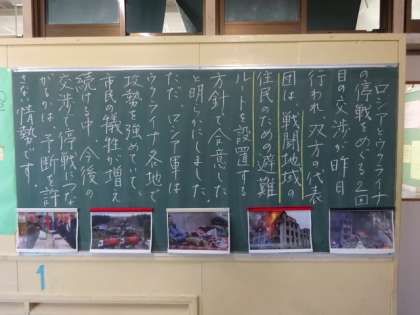 ロシアとウクライナ
の停戦をめぐる2回
目の交渉が昨日
行われ、双方の代表
団は、戦闘地域の
住民のための避難
ルートを設置する
方針で合意した
と明らかにしました。
ただ、ロシア軍は
ウクライナ各地で
攻勢を強めていて、
市民の犠牲が増え
続ける中、今後の
交渉で停戦につな
がるかは予断を許
さない情勢です。
1